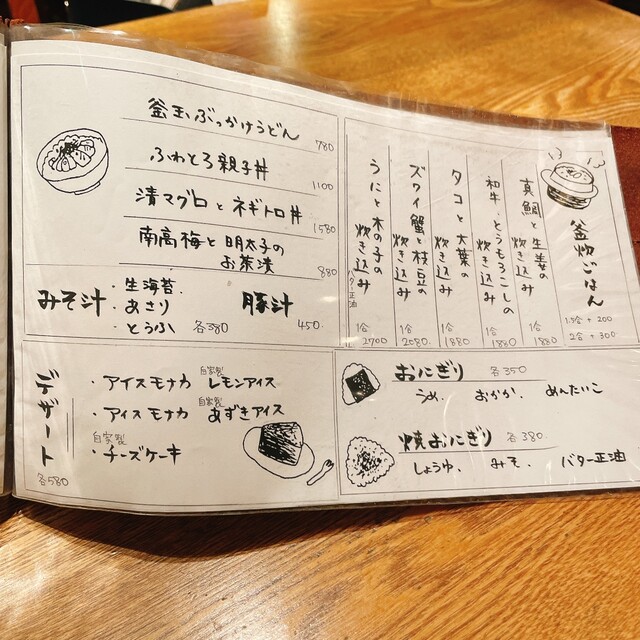 釜玉ぶっかけうどん 780
ふわとろ親子丼 1100
漬マグロとネギトロ丼 1580
南高梅と明太子の
お茶漬 880
みそ汁
・生海苔
・あさり
・とうふ 各380
豚汁 450
釜炊ごはん
1.5合 + 200
2合 + 300
真鯛と生姜の
炊き込み
1合 1880
和牛、とうもろこしの
炊き込み
1合 1880
タコと大葉の
炊き込み
1合 1880
ズワイ蟹と枝豆の
炊き込み
1合 2080
うにと木の子の
炊き込み
バター正油
1合 2700
デザート 各580
・アイスモナカ 自家製 レモンアイス
・アイスモナカ 自家製 あずきアイス
・自家製 チーズケーキ
おにぎり 各350
うめ、 おかか、 めんたいこ
焼おにぎり 各380
しょうゆ、 みそ、 バター正油